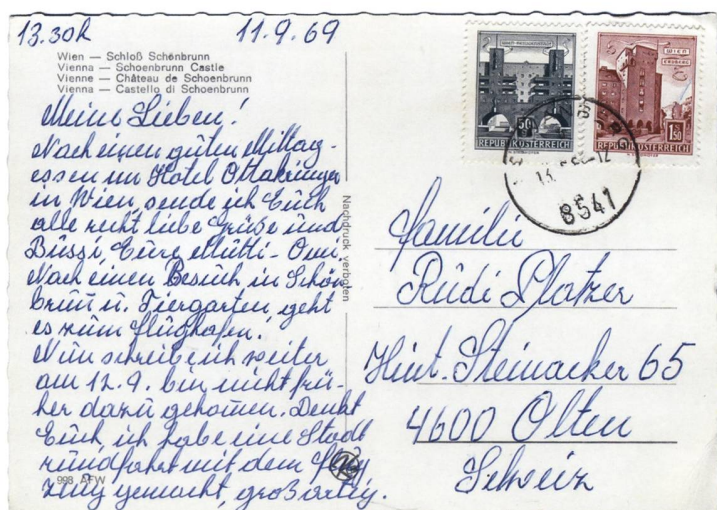 13.30h 11.9.69
Wien — Schloß Schönbrunn
Vienna — Schoenbrunn Castle
Vienne — Château de Schoenbrunn
Vienna — Castello di Schoenbrunn
Meine Lieben!
Nach einen guten Mittag-
essen im Hotel Ottakringer
in Wien, sende ich Euch
alle recht liebe Grüße und
Bussi, Eure Mutti - Omi.
Nach einen Besuch in Schön
brunn u. Tiergarten, geht
es zum Flughafen!
Nun schreibe ich weiter
am 12.9. bin nicht frü-
her dazu gekommen. Denkt
Euch, ich habe eine Stadt
rundfahrt mit dem Flug
zeug gemacht, großartig.
998 AFW
Nachdruck verboten
50
REPUBLIK ÖSTERREICH
WIEN
ERDBERG
1.50
REPUBLIK ÖSTERREICH
8541
Familie
Rüdi Platzer
Hint. Steinacker 65
4600 Olten
Schweiz